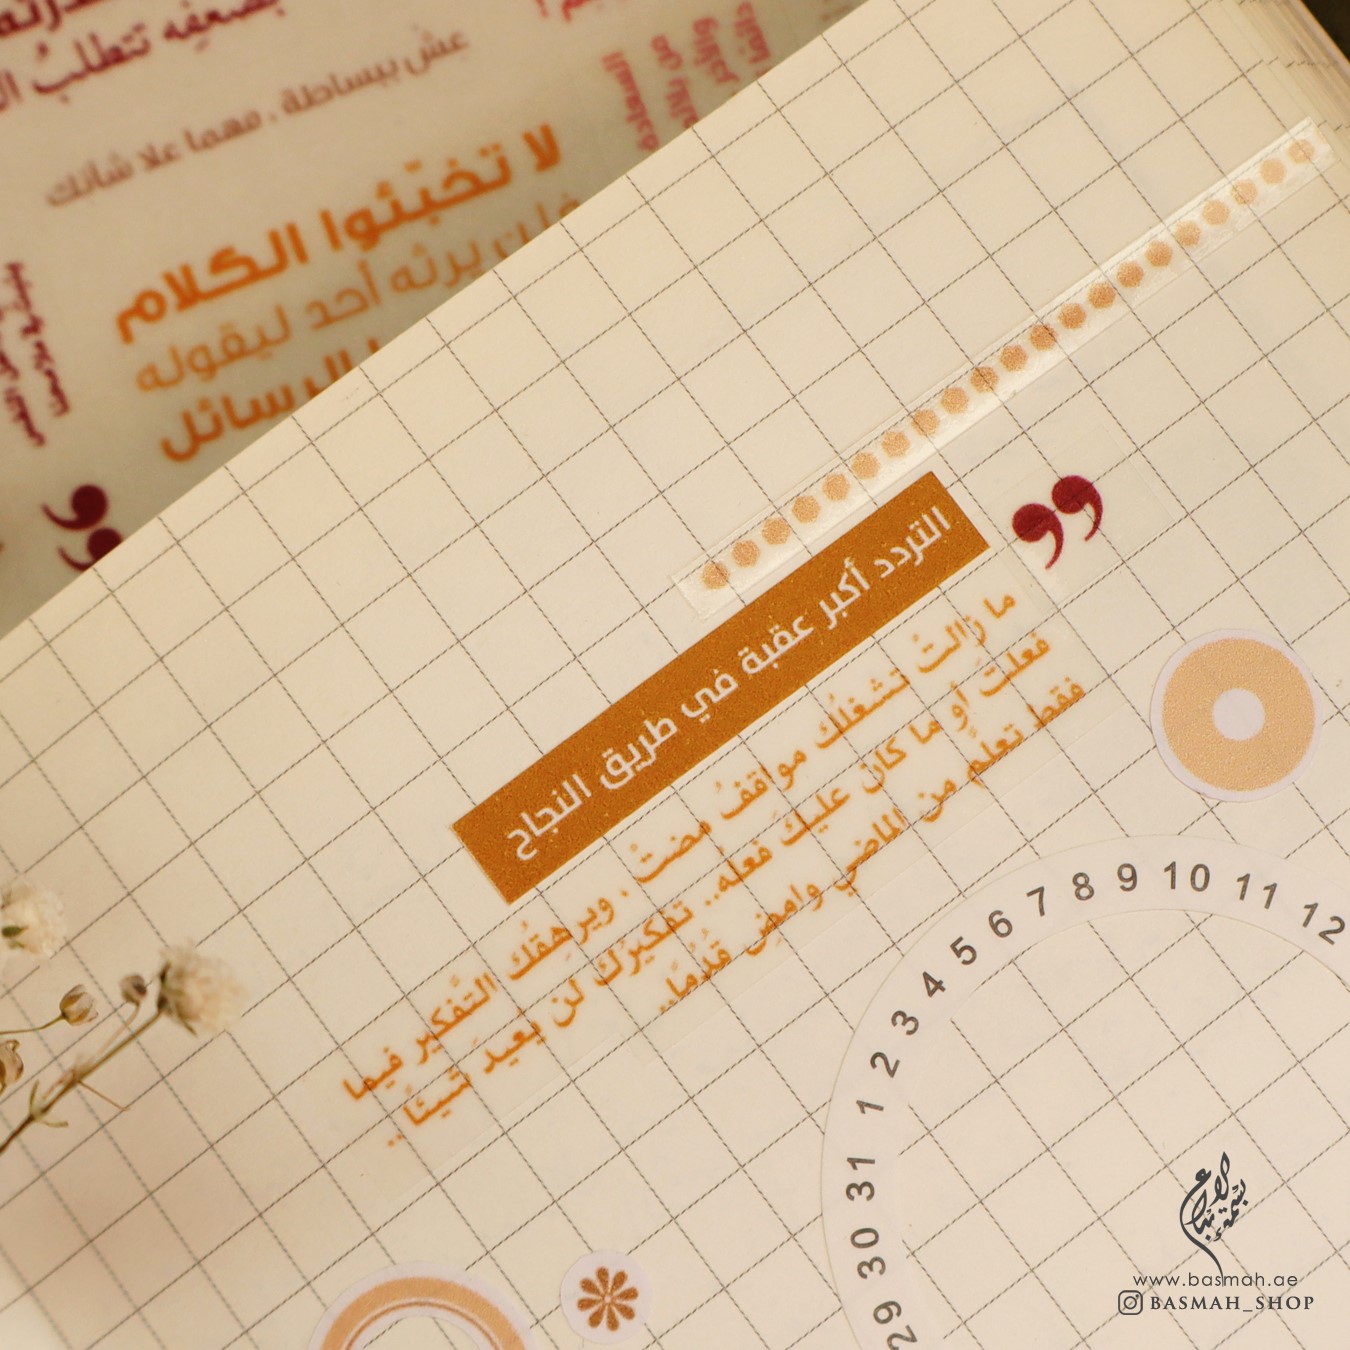 بضعيفه تتطلبُ
عشْ ببساطة , مهما علا شأنك
لا تخبّئوا الكلام
فلن يرثه أحد ليقوله
الرسائل
التردد أكبر عقبة في طريق النجاح
ما زالتْ تشغلُك مواقفُ مضتْ ، ويرهقُك التَّفكير فيما
فعلتَ أو ما كان عليكَ فعلُه.. تفكيرُك لن يعيدَ شيئًا..
فقط تعلم من الماضي وامضِ قُدُمًا..
29 30 31 1 2 3 4 5 6 7 8 9 10 11 12
بسمة الإبداع
www.basmah.ae
BASMAH_SHOP